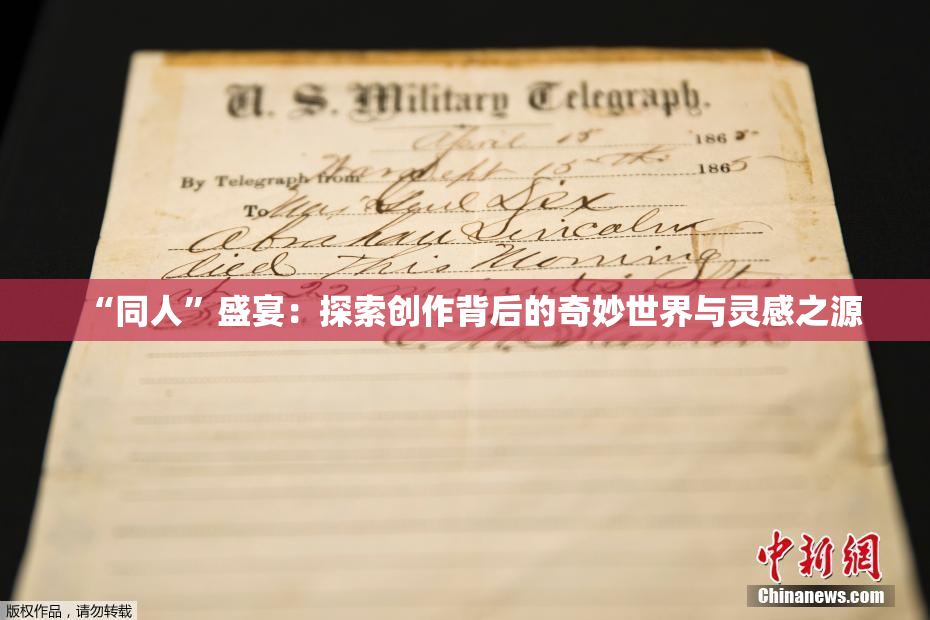 U. S. Military Telegraph.
April 15 1865
By Telegraph from War Dept 15th 1865
To Maj Genl Dix
Abraham Lincoln
died This Morning
at 22 minutes after
“同人”盛宴：探索创作背后的奇妙世界与灵感之源
E. M. Stanton
中新网
Chinanews.com
版权作品，请勿转载